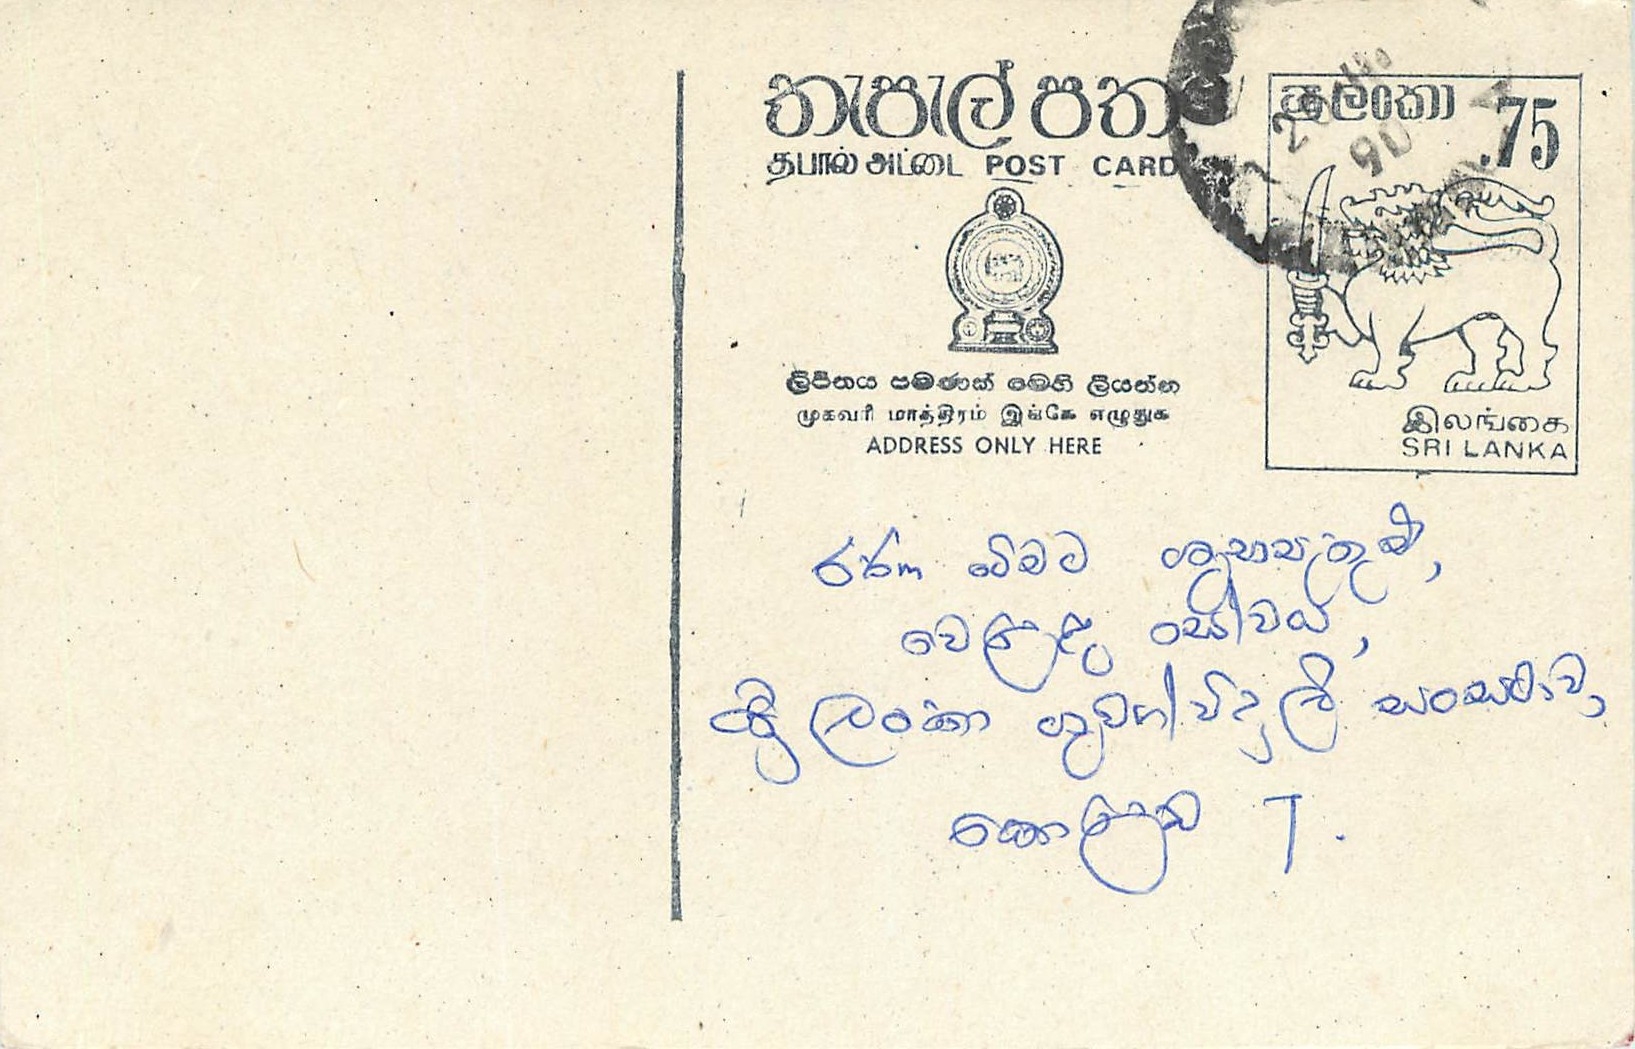 තැපැල් පත
தபால் அட்டை POST CARD
ශ්‍රී ලංකා .75
20 JUN
90
ලිපිනය පමණක් මෙහි ලියන්න
முகவரி மாத்திரம் இங்கே எழுதுக
ADDRESS ONLY HERE
இலங்கை
SRI LANKA
සුභපැතුම්,
වෙළඳ සේවය,
ශ්‍රී ලංකා ගුවන් විදුලි සංස්ථාව,
කොළඹ 7.